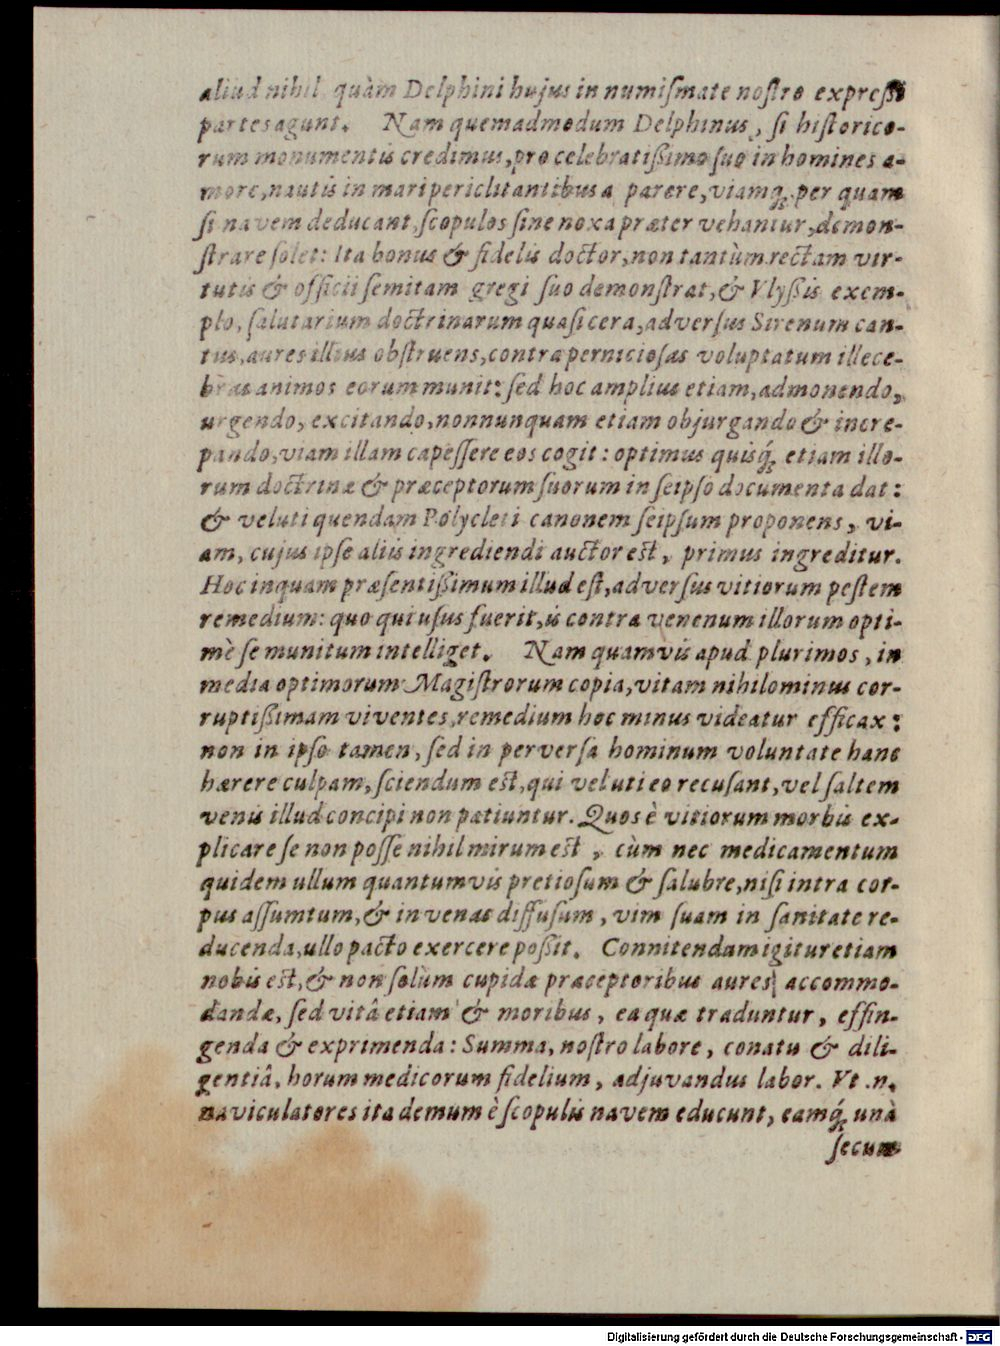 aliud nihil quàm Delphini hujus in numiſmate noſtro expreſſi
partes agunt. Nam quemadmodum Delphinus, ſi hiſtorico-
rum monumentis credimus, pro celebratißimo ſuo in homines a-
more, nautis in mari periclitantibus a parere, viamq́; per quam
ſi navem deducant, ſcopulos ſine noxa præter vehantur, demon-
ſtrare ſolet: Ita bonus & fidelis doctor, non tantùm rectam vir-
tutis & officii ſemitam gregi ſuo demonſtrat, & Vlyßis exem-
plo, ſalutarium doctrinarum quaſi cera, adverſus Sirenum can-
tus, aures illius obſtruens, contra pernicioſas voluptatum illece-
bras animos eorum munit: ſed hoc amplius etiam, admonendo,
urgendo, excitando, nonnunquam etiam objurgando & incre-
pando, viam illam capeſſere eos cogit: optimus quisq́; etiam illo-
rum doctrinæ & præceptorum ſuorum in ſeipſo documenta dat:
& veluti quendam Polycleti canonem ſeipſum proponens, vi-
am, cujus ipſe aliis ingrediendi auctor eſt, primus ingreditur.
Hoc inquam præſentißimum illud eſt, adverſus vitiorum peſtem
remedium: quo qui uſus fuerit, is contra venenum illorum opti-
mè ſe munitum intelliget. Nam quamvis apud plurimos, in
media optimorum Magiſtrorum copia, vitam nihilominus cor-
ruptißimam viventes, remedium hoc minus videatur efficax:
non in ipſo tamen, ſed in perverſa hominum voluntate hanc
hærere culpam, ſciendum eſt, qui vel uti eo recuſant, vel ſaltem
venis illud concipi non patiuntur. Quos è vitiorum morbis ex-
plicare ſe non poſſe nihil mirum eſt, cùm nec medicamentum
quidem ullum quantumvis pretioſum & ſalubre, niſi intra cor-
pus aſſumtum, & in venas diffuſum, vim ſuam in ſanitate re-
ducenda, ullo pacto exercere poßit. Connitendum igitur etiam
nobis eſt, & non ſolùm cupidæ præceptoribus aures accommo-
dandæ, ſed vitâ etiam & moribus, ea quæ traduntur, effin-
genda & exprimenda: Summa, noſtro labore, conatu & dili-
gentiâ, horum medicorum fidelium, adjuvandus labor. Vt .n.
naviculatores ita demum è ſcopulis navem educunt, eamq́; unà
ſecum
Digitalisierung gefördert durch die Deutsche Forschungsgemeinschaft - DFG